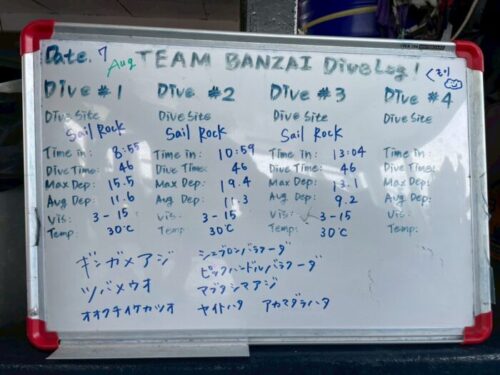 Date. 7 Aug TEAM BANZAI DiveLog! くもり
Dive #1 Dive #2 Dive #3 Dive #4
Dive Site Dive Site Dive Site Dive Site
Sail Rock Sail Rock Sail Rock
Time in: 8:55 Time in: 10:59 Time in: 13:04 Time in:
Dive Time: 46 Dive Time: 46 Dive Time: 46 Dive Time:
Max Dep: 15.5 Max Dep: 19.4 Max Dep: 13.1 Max Dep:
Avg Dep: 11.6 Avg Dep: 11.3 Avg Dep: 9.2 Avg Dep:
Vis: 3-15 Vis: 3-15 Vis: 3-15 Vis:
Temp: 30℃ Temp: 30℃ Temp: 30℃ Temp:
ギンガメアジ シェブロンバラクーダ
ピックハンドルバラクーダ
ツバメウオ マブタシマアジ
オオクチイケカツオ ヤイトハタ アカマダラハタ